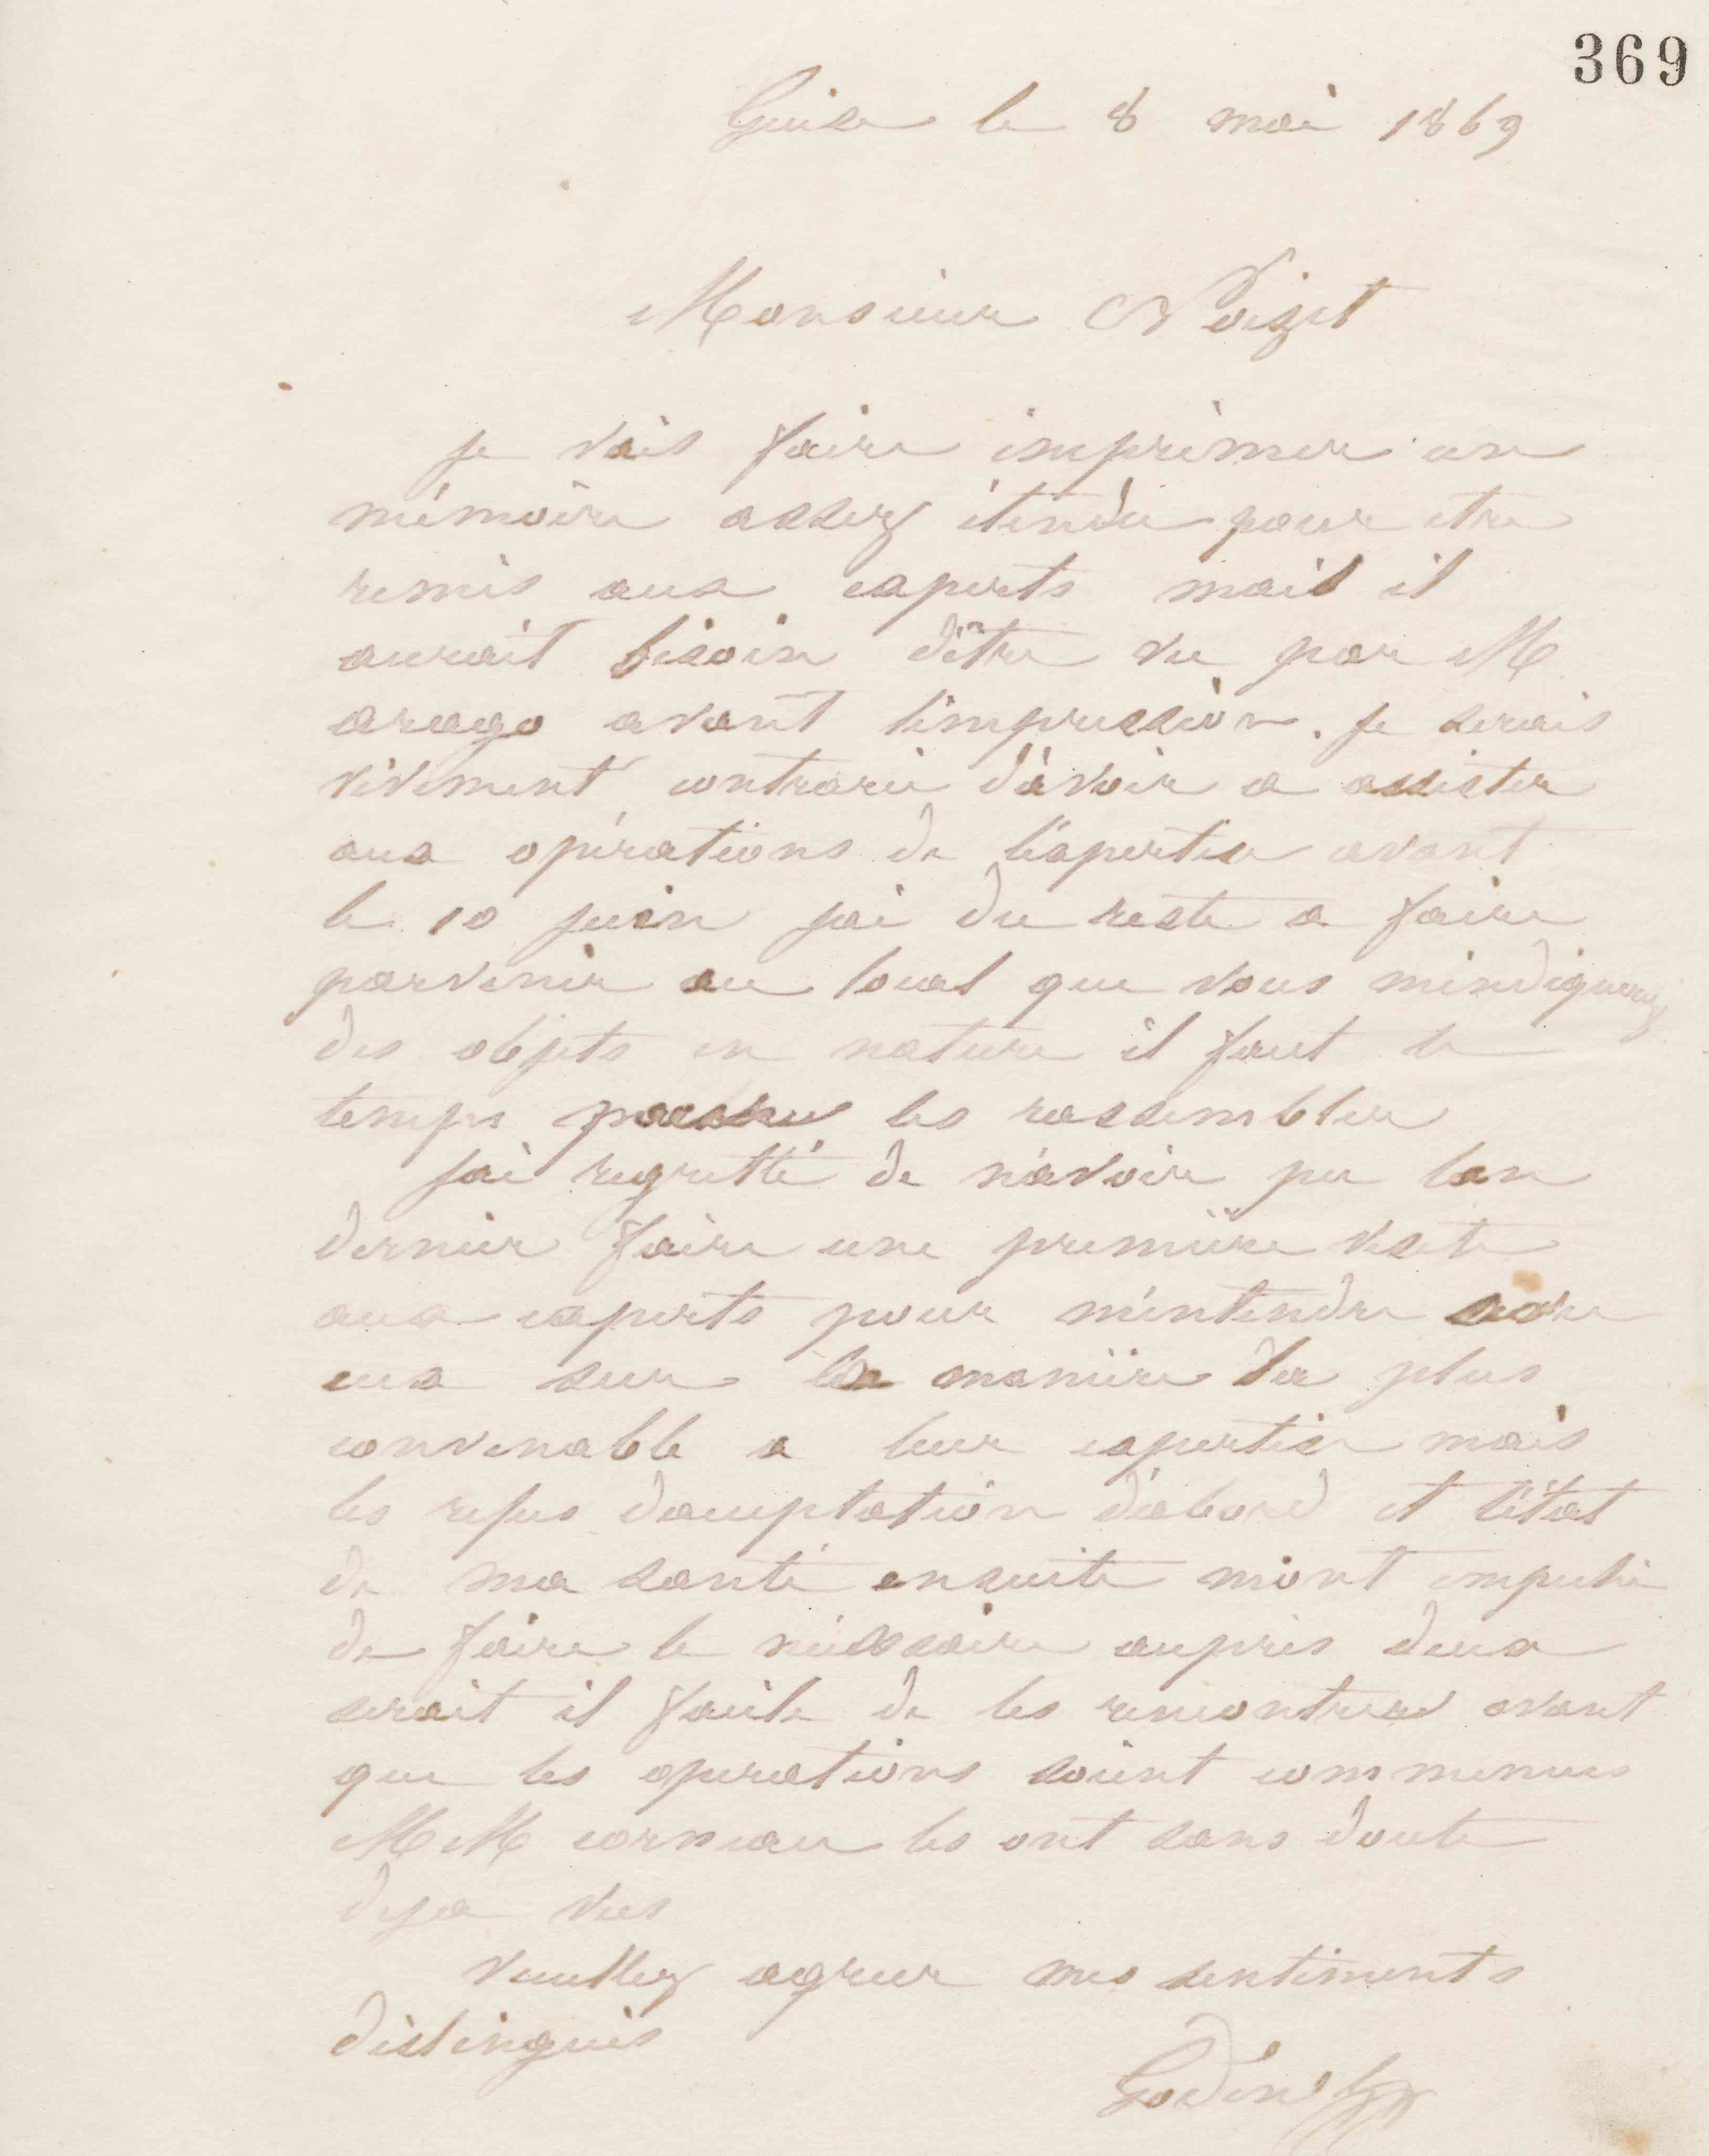 369
Guise le 8 mai 1869
Monsieur Noizet
je vais faire imprimer un
mémoire assez étendu pour etre
remis aux experts mais il
aurait besoin d'être vu par M
arago avant l'impression. je serais
vivement contrarié d'avoir a assister
aux opérations de l'expertise avant
le 10 juin jai du reste a faire
parvenir au local que vous mindiquerez
des objets en nature il faut le
temps pour les rassembler
jai regretté de n'avoir pu lan
dernier faire une première visite
aux experts pour m'entendre avec
eux sur la manière la plus
convenable a leur expertise mais
les refus dacceptation d'abord et l'état
de ma santé ensuite m'ont empeché
de faire le nécessaire auprès deux
serait il facile de les rencontrer avant
que les operations soient commences
MM corneau les ont sans doute
deja vus
veuillez agreer mes sentiments
distingués
Godin